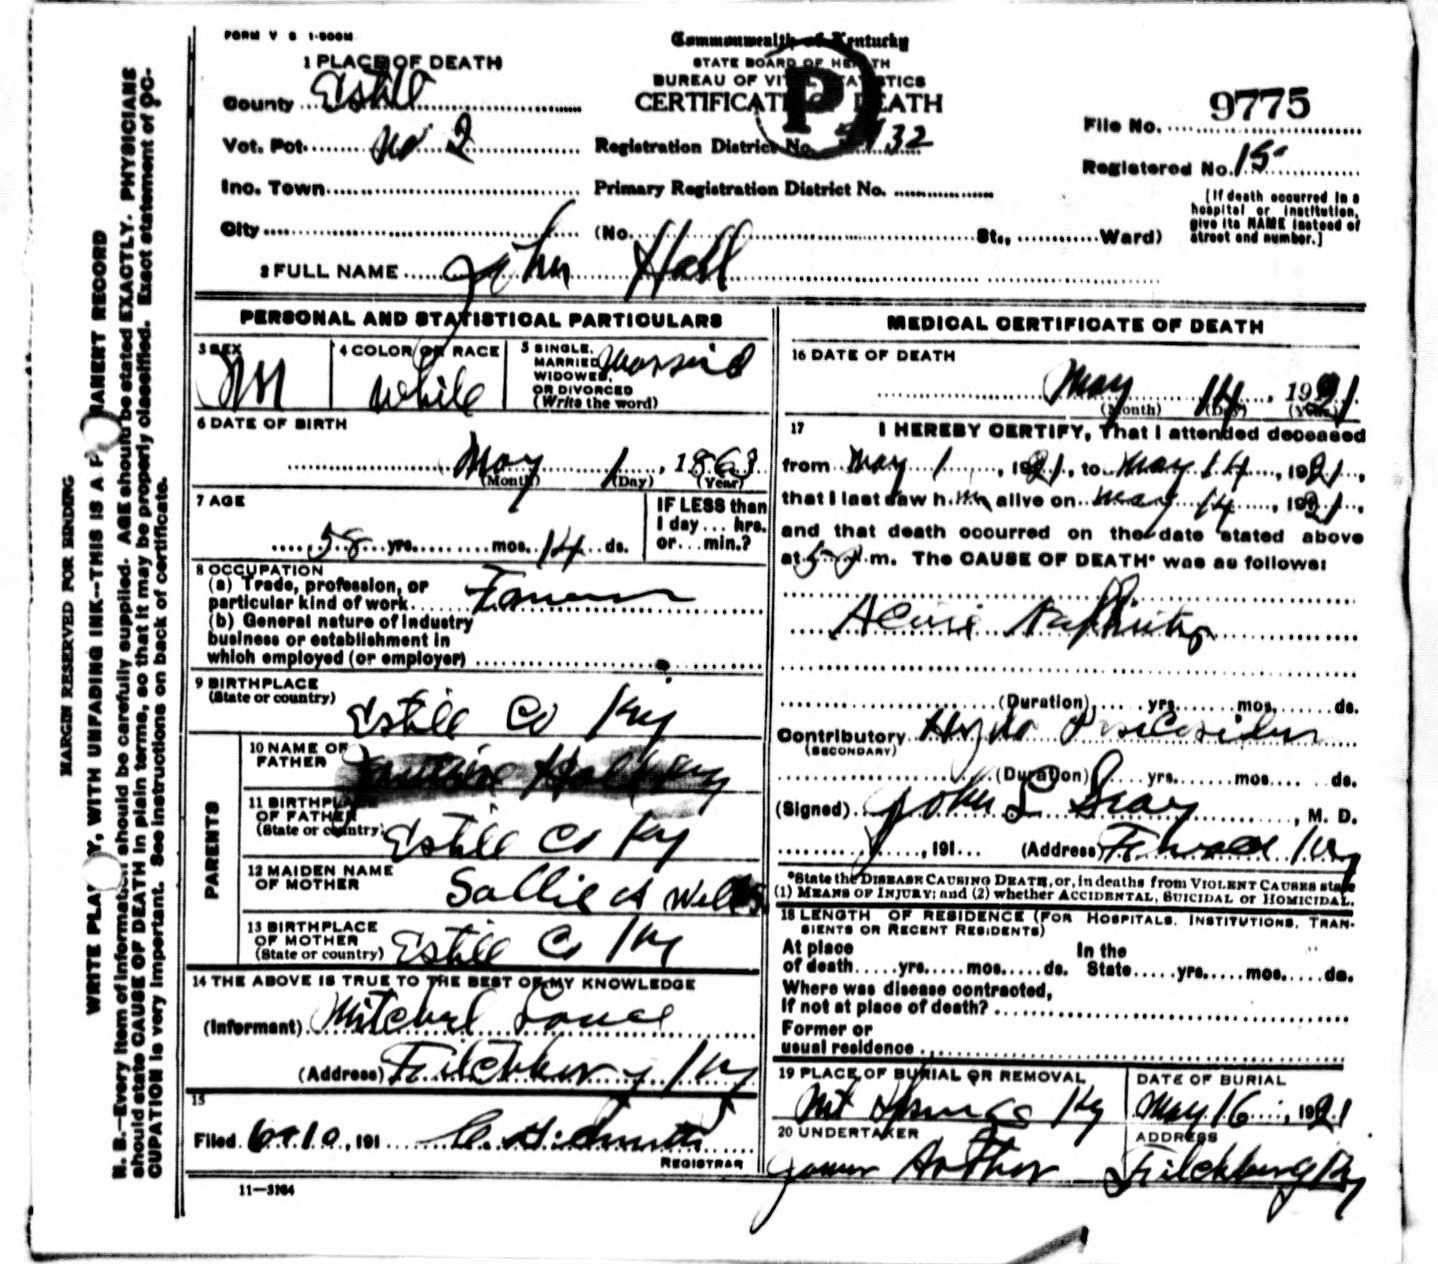 FORM V S 1-500M
Commonwealth of Kentucky
STATE BOARD OF HEALTH
BUREAU OF VITAL STATISTICS
CERTIFICATE OF DEATH
P
1 PLACE OF DEATH
County Estill
Vot. Pot. No 2
Registration District No. 5132
File No. 9775
Registered No. 15
Inc. Town
Primary Registration District No.
[If death occurred in a hospital or institution, give its NAME instead of street and number.]
City (No. St., Ward)
2 FULL NAME John Hall
PERSONAL AND STATISTICAL PARTICULARS
3 SEX M
4 COLOR OR RACE White
5 SINGLE, MARRIED, WIDOWED, OR DIVORCED (Write the word) Married
6 DATE OF BIRTH
May 1, 1863
(Month) (Day) (Year)
7 AGE
58 yrs. mos. 14 ds.
IF LESS than 1 day ... hrs. or ... min.?
8 OCCUPATION
(a) Trade, profession, or
particular kind of work Farmer
(b) General nature of Industry
business or establishment in
which employed (or employer)
9 BIRTHPLACE
(State or country)
Estill Co Ky
PARENTS
10 NAME OF FATHER
11 BIRTHPLACE OF FATHER (State or country) Estill Co Ky
12 MAIDEN NAME OF MOTHER Sallie A Wells
13 BIRTHPLACE OF MOTHER (State or country) Estill Co Ky
14 THE ABOVE IS TRUE TO THE BEST OF MY KNOWLEDGE
(Informant) Mitchel
(Address) Fitchburg Ky
15
Filed 6-10, 191
REGISTRAR
11-3184
MEDICAL CERTIFICATE OF DEATH
16 DATE OF DEATH
May 14, 1921
(Month) (Day) (Year)
17 I HEREBY CERTIFY, That I attended deceased
from May 1, 1921, to May 14, 1921,
that I last saw him alive on May 14, 1921,
and that death occurred on the date stated above
at 5 m. The CAUSE OF DEATH* was as follows:
Acute Nephritis
(Duration) yrs. mos. ds.
Contributory
(SECONDARY)
(Duration) yrs. mos. ds.
(Signed) John L Gray, M. D.
, 191 (Address) Ky
*State the DISEASE CAUSING DEATH, or, in deaths from VIOLENT CAUSES state
(1) MEANS OF INJURY; and (2) whether ACCIDENTAL, SUICIDAL or HOMICIDAL.
18 LENGTH OF RESIDENCE (FOR HOSPITALS, INSTITUTIONS, TRAN-
SIENTS OR RECENT RESIDENTS)
At place of death yrs. mos. ds. In the State yrs. mos. ds.
Where was disease contracted,
If not at place of death?
Former or
usual residence
19 PLACE OF BURIAL OR REMOVAL
Mt Springs Ky
DATE OF BURIAL
May 16, 1921
20 UNDERTAKER
Arthur
ADDRESS
Fitchburg Ky
MARGIN RESERVED FOR BINDING
WRITE PLAINLY, WITH UNFADING INK--THIS IS A PERMANENT RECORD
N. B.--Every item of information should be carefully supplied. AGE should be stated EXACTLY. PHYSICIANS
should state CAUSE OF DEATH in plain terms, so that it may be properly classified. Exact statement of OC-
CUPATION is very important. See instructions on back of certificate.